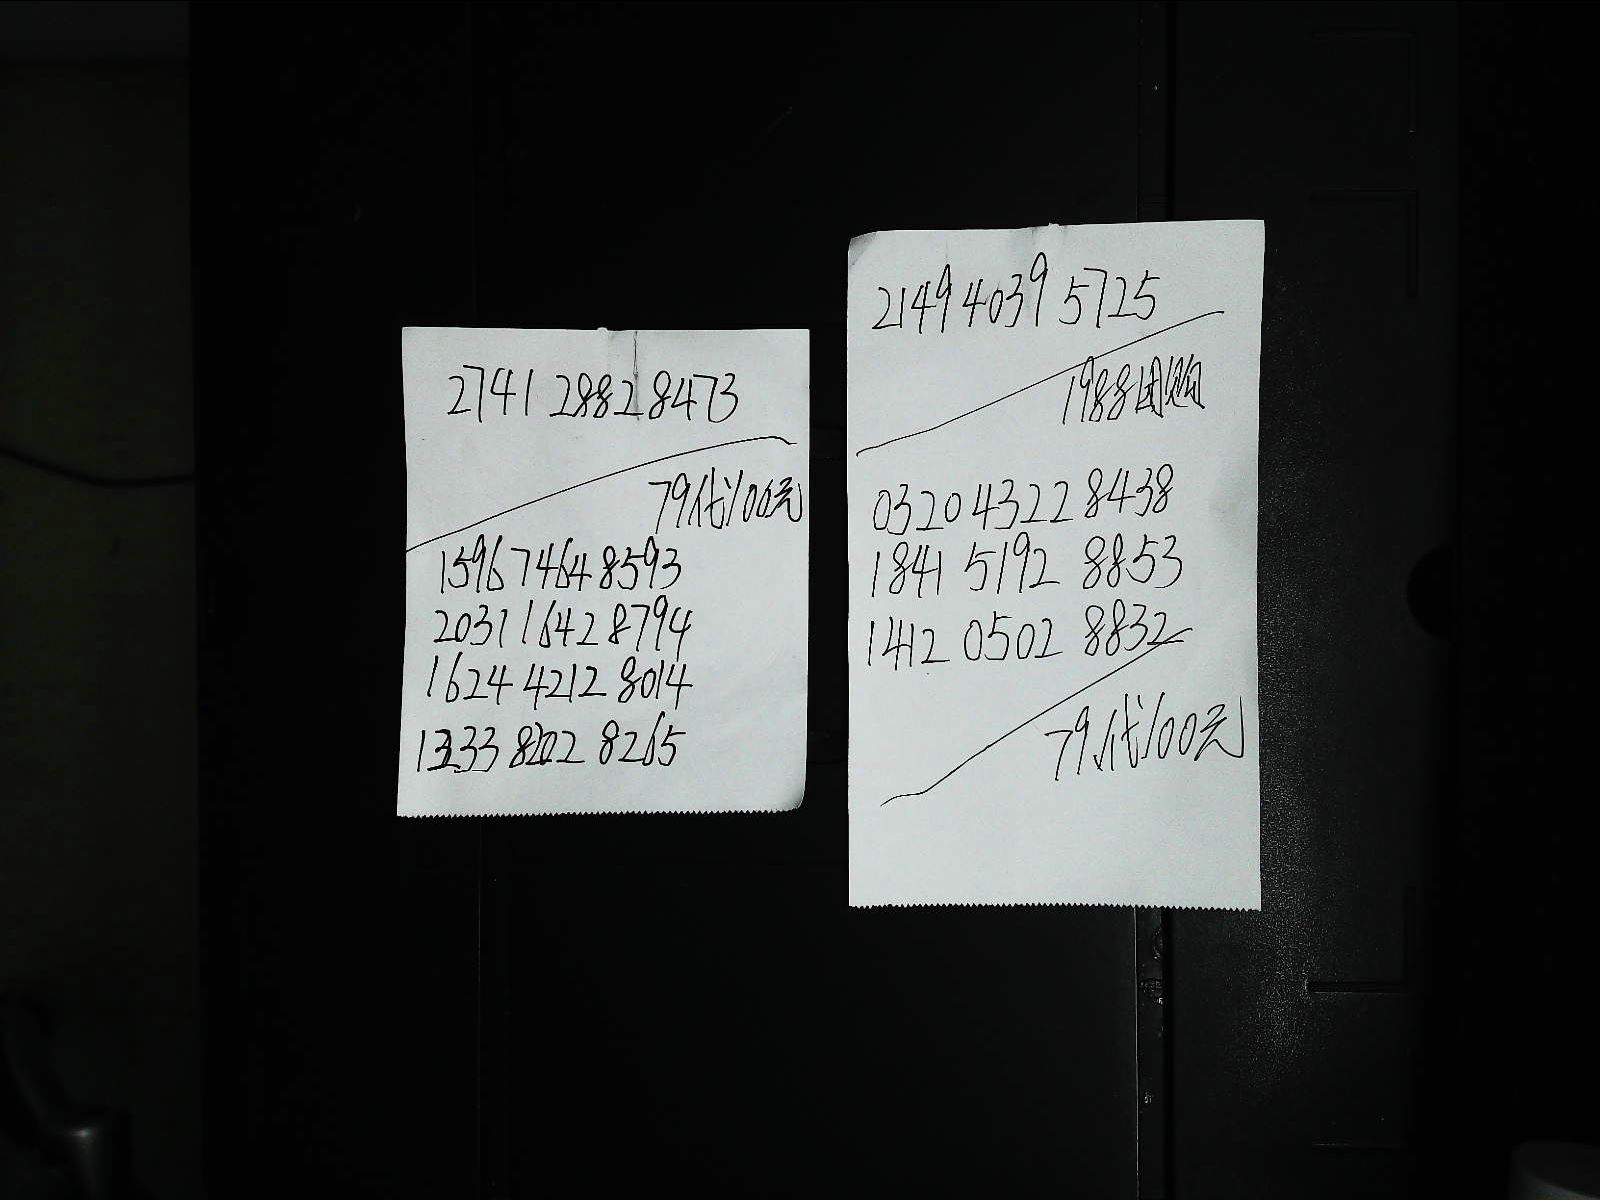 2741 2882 8473
79代100元
1596 7464 8593
2031 1642 8794
1624 4212 8014
1333 8202 8265
2149 4039 5725
1988团购
0320 4322 8438
1841 5192 8853
1412 0502 8832
79代100元